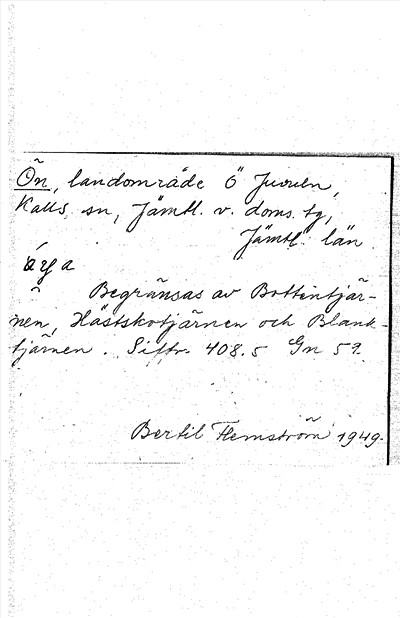 Ön, landområde ö Juveln,
Kalls sn, Jämtl. v. doms. tg,
Jämtl. län
öya
Begränsas av Bottentjär-
nen, Hästskotjärnen och Blank-
tjärnen. Siffr. 408.5 Gn 59.
Bertil Flemström 1949.